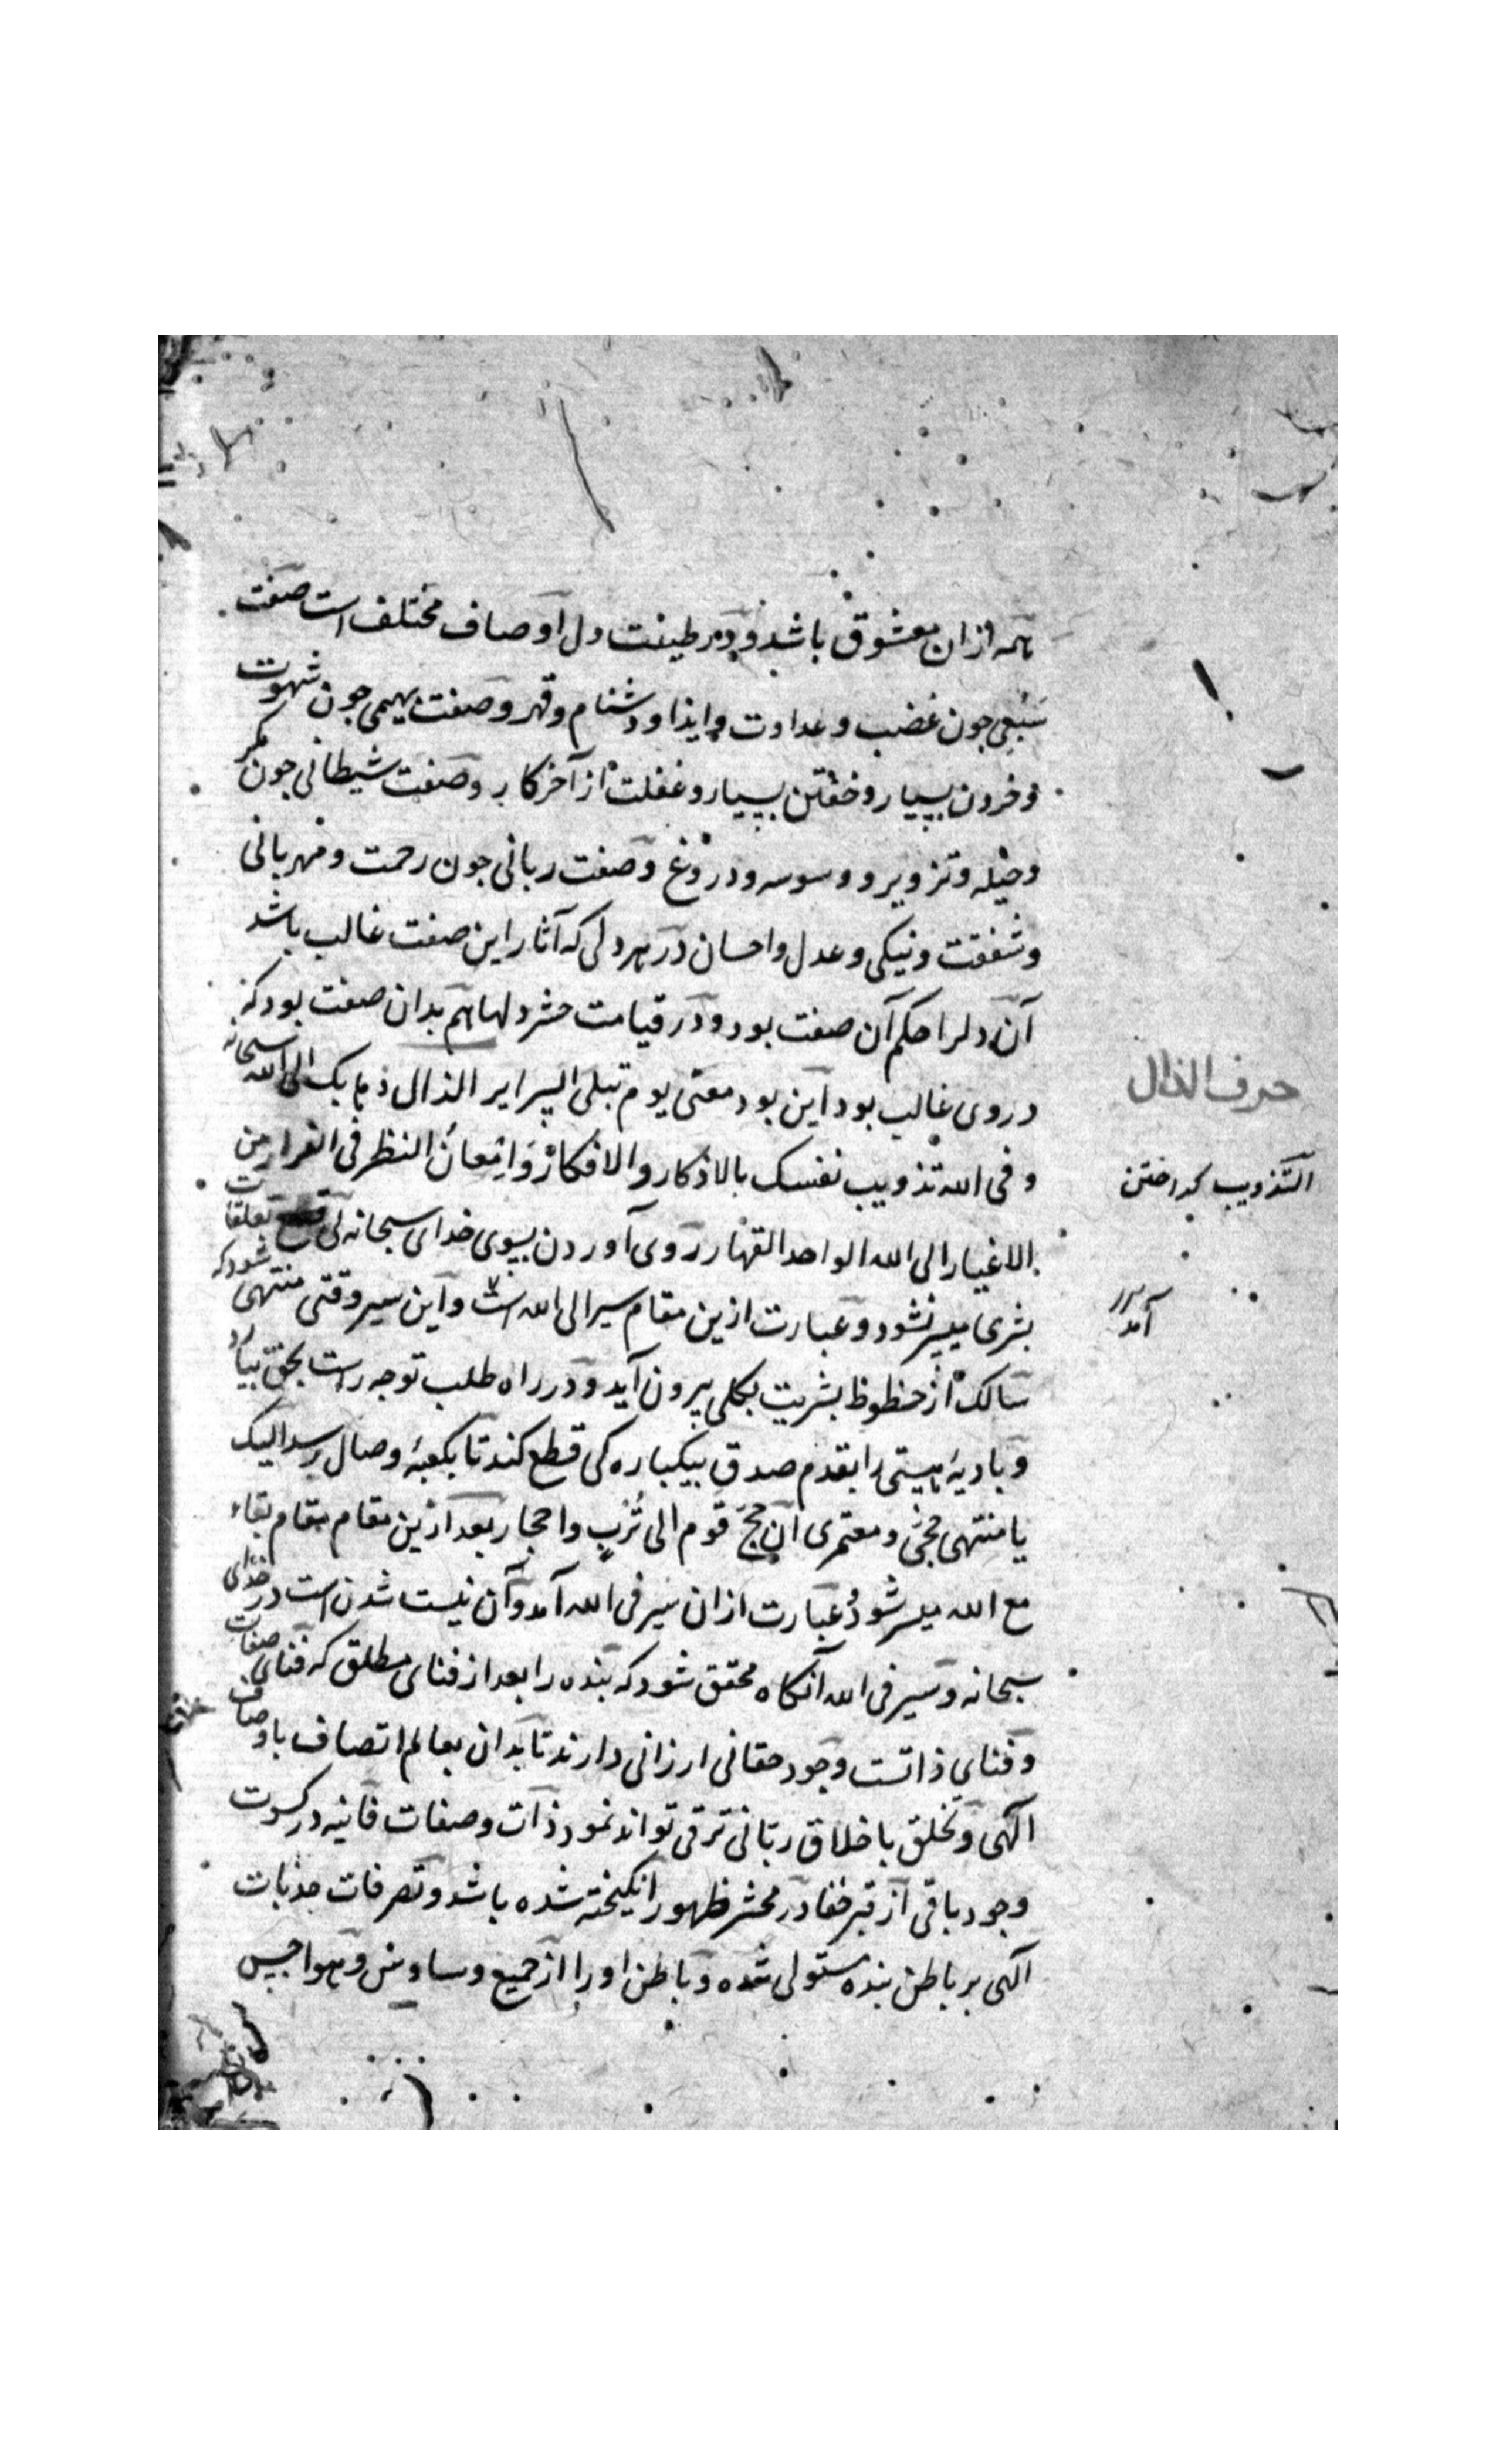 همه از ان معشوق باشد و در طینت دل اوصاف مختلف است صفت
سبعی جون غضب و عداوت و ایذا و دشنام و قهر و صفت بهیمی جون شهوت
و خوردن بسیار و خفتن بسیار و غفلت از آخر کار و صفت شیطانی جون مکر
و حیله و تزویر و وسوسه و دروغ و صفت ربانی جون رحمت و مهربانی
و شفقت و نیکی و عدل و احسان در هر دلی که آثار این صفت غالب باشد
آن دلرا حکم آن صفت بود و در قیامت حشر دلها هم بدان صفت بود که
در وی غالب بود این بود معنی یوم تبلی السرایر الذال ذهابک الی الله سبحانه
و فی الله تذویب نفسک بالاذکار و الافکار و امعان النظر فی الفرار من
الاغیار الی الله الواحد القهار روی آوردن بسوی خدای سبحانه بی قطع تعلقات
بشری میسر نشود و عبارت ازین مقام سیر الی الله است و این سیر وقتی منتهی شود که
سالک از حظوظ بشریت بکلی بیرون آید و در راه طلب توجه راست بحق بیارد
و بادیهٔ هستی را بقدم صدق بیکبارکی قطع کند تا بکعبهٔ وصال رسد الیک
یا منتهی حجی و معتمری ان حج قوم الی ترب و احجار بعد ازین مقام مقام بقاء
مع الله میسر شود عبارت از ان سیر فی الله آمد و آن نیست شدن است در خدای
سبحانه و سیر فی الله آنکاه محقق شود که بنده را بعد از فنای مطلق که فنای صفات
و فنای ذاتست وجود حقانی ارزانی دارند تا بدان بعالم اتصاف باوصاف
الهی و تخلق باخلاق ربانی ترقی تواند نمود ذات و صفات فانیه در کسوت
وجود باقی از قبر خفا در محشر ظهور انکیخته شده باشد و تصرفات جذبات
الهی بر باطن بنده مستولی شده و باطن او را از جمیع وساوس و هواجس
حرف الذال
التذویب کداختن
آمد